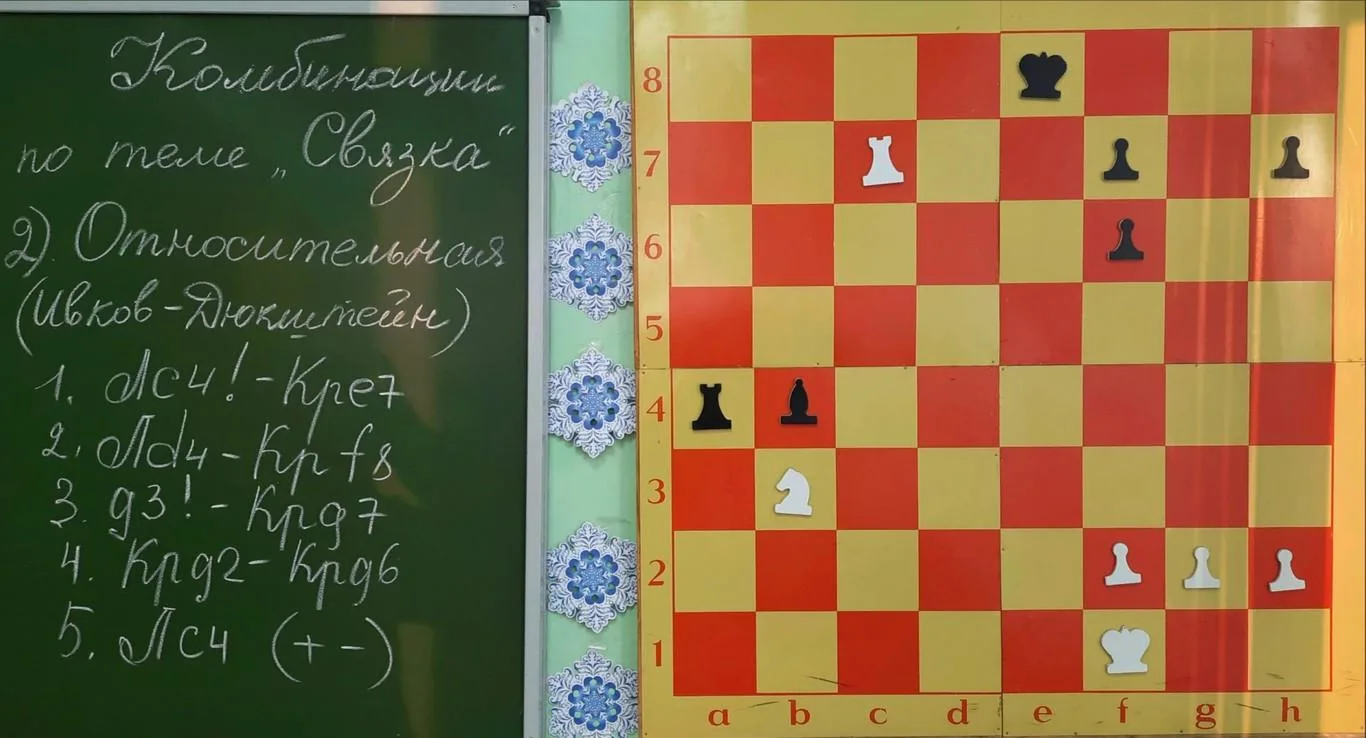 Комбинации
по теме „Связка“
2) Относительная
(Ивков-Дюкштейн)
1. Лc4! - Крe7
2. Лd4 - Крf8
3. g3! - Крg7
4. Крg2 - Крg6
5. Лc4 (+ -)
8
7
6
5
4
3
2
1
a b c d e f g h